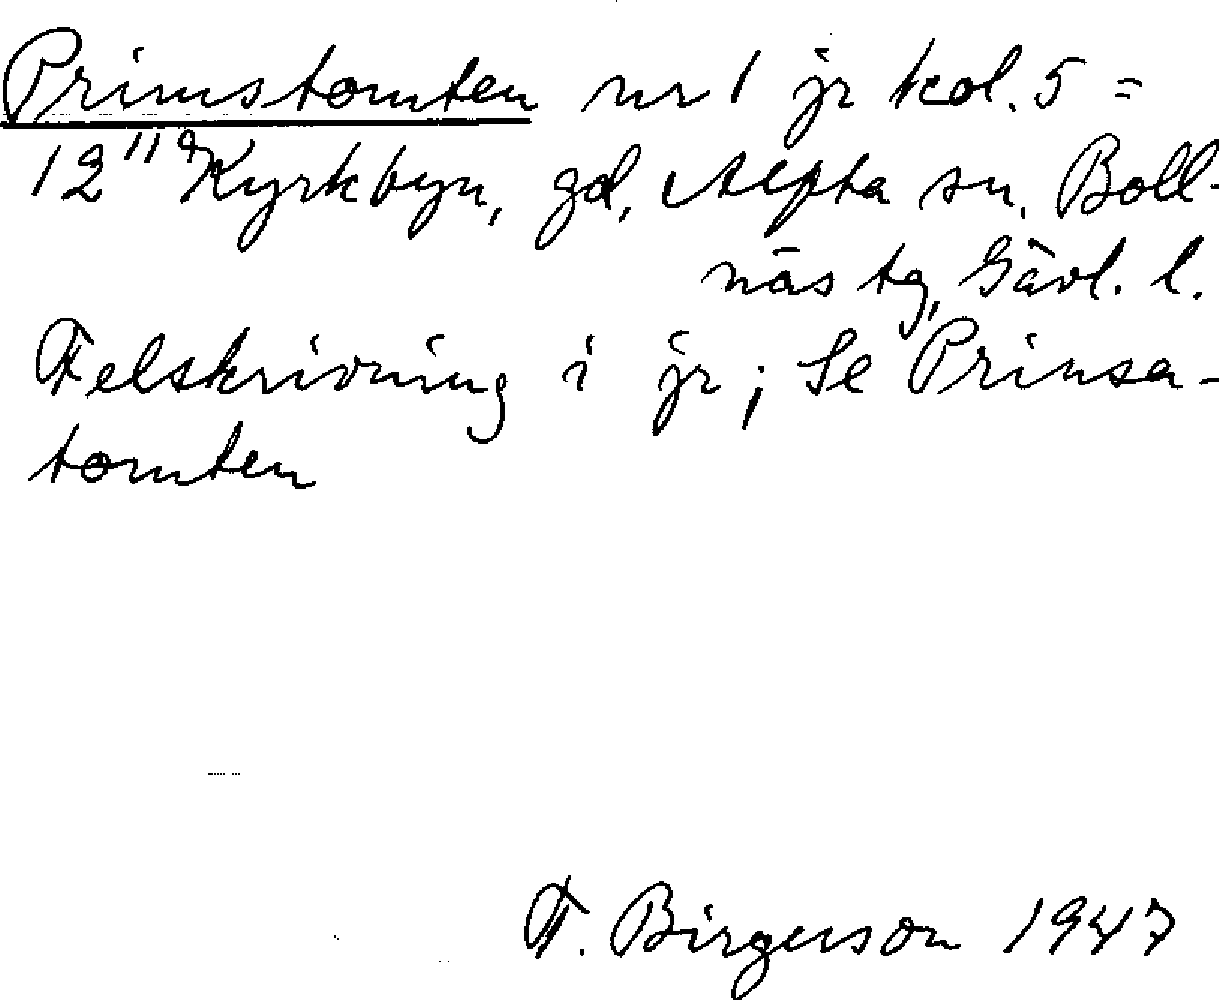 Primstomten nr 1 jr kol. 5 =
12¹¹ᵃ Kyrkbyn, gd, Alfta sn. Boll-
näs tg, Gävl. l.
Felskrivning i jr; Se Prinsa-
tomten
F. Birgerson 1947